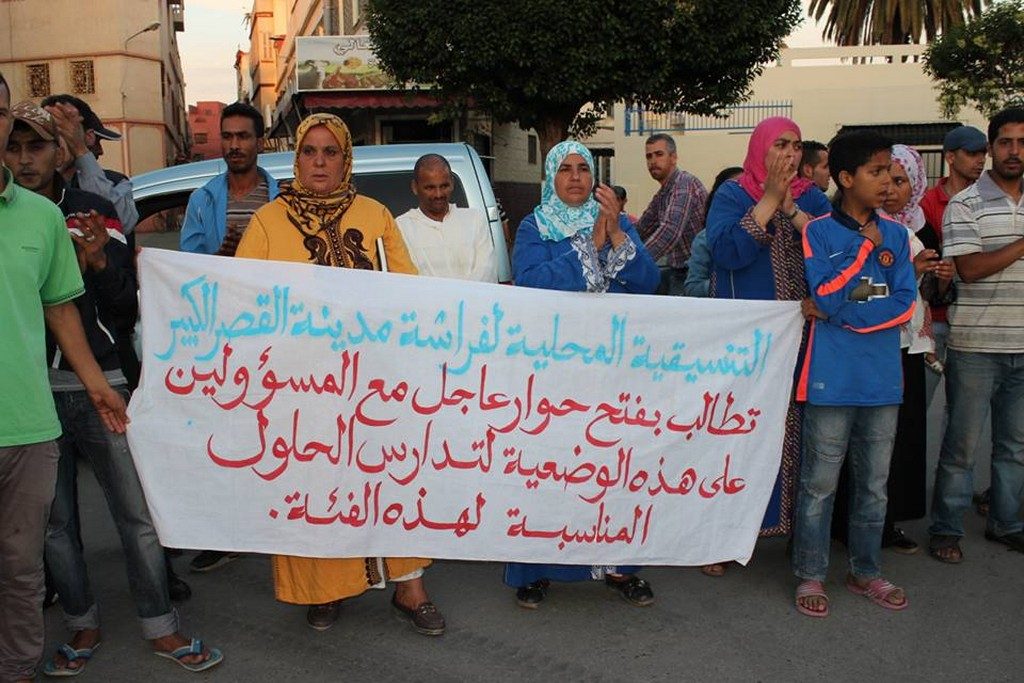 التنسيقية المحلية لفراشة مدينة القصر الكبير
تطالب بفتح حوار عاجل مع المسؤولين
على هذه الوضعية لتدارس الحلول
المناسبة لهذه الفئة.